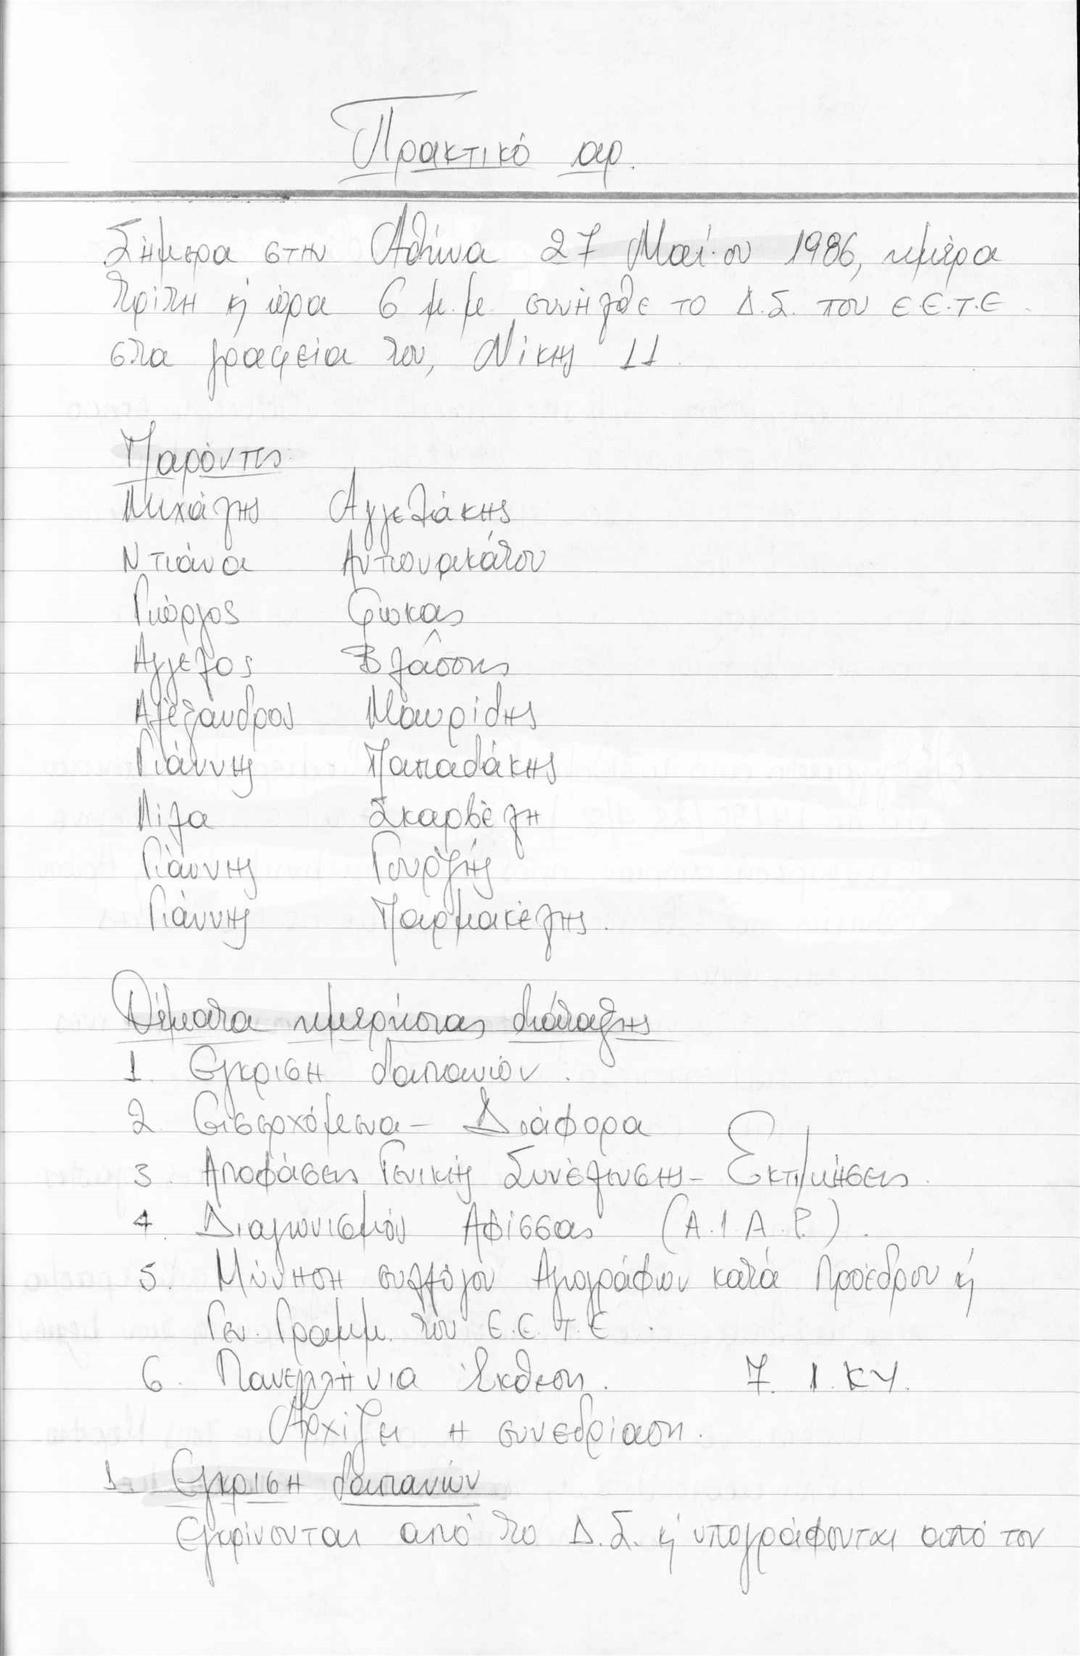 Πρακτικό αρ.
Σήμερα στην Αθήνα 27 Μαΐου 1986, ημέρα
Τρίτη κ' ώρα 6 μ.μ. συνήλθε το Δ.Σ. του Ε.Ε.Τ.Ε.
στα γραφεία του, Νίκης 11
Παρόντες
Μιχάλης Αγγελάκης
Ντιάνα Αντωνακάτου
Γιώργος Φωκας
Αγγέλος Βλάσσης
Αλέξανδρος Μαυρίδης
Γιάννης Παπαδάκης
Λίλα Σκαρβέλη
Γιάννης Γουρζής
Γιάννης Παρμακέλης.
Θέματα ημερήσιας διάταξης
1. Εγκριση δαπανών.
2 Εισερχόμενα - Διάφορα
3. Αποφάσεις Γενικής Συνέλευσης - Εκτιμήσεις.
4. Διαγωνισμόν Αφίσσας (Α.Ι.Α.Ρ.).
5. Μύνηση συλλόγου Αγιογράφων κατά Προέδρου κ'
Γεν. Γραμμ. του Ε.Ε.Τ.Ε.
6. Πανελλήνια έκθεση. 7. Ι.ΚΥ.
Αρχίζει η συνεδρίαση.
1. Εγκριση δαπανών
Εγκρίνονται από το Δ.Σ. κ' υπογράφονται από τον